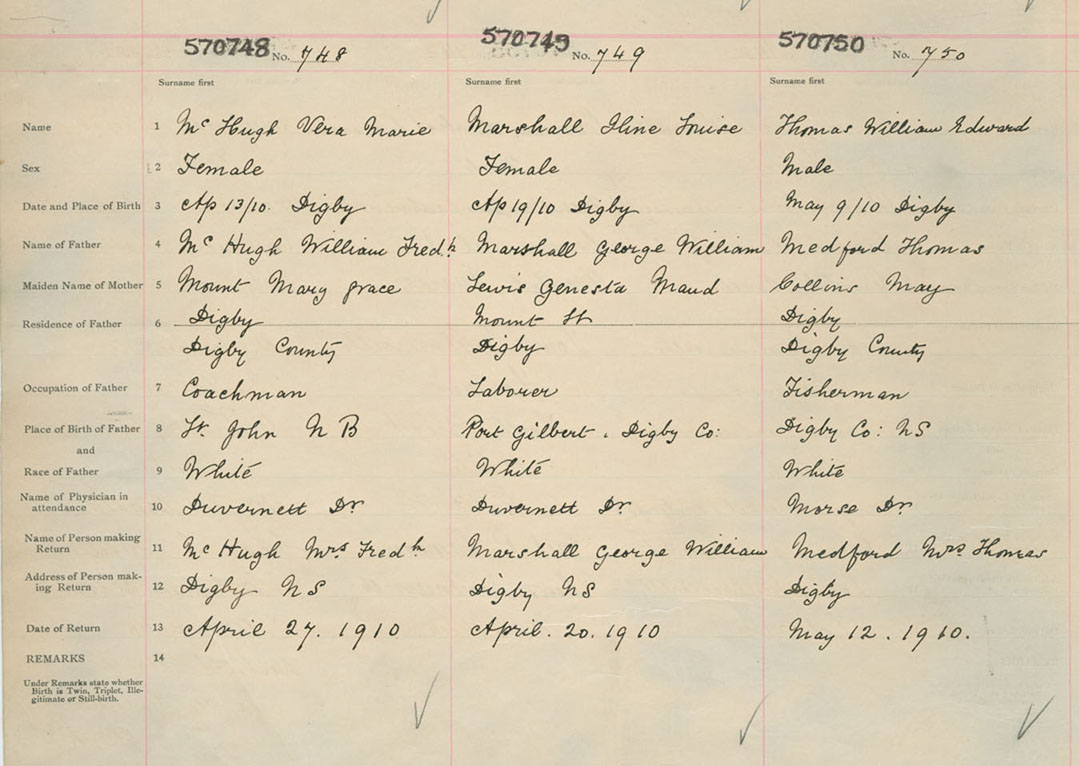 570748 No. 748 570749 No. 749 570750 No. 750
Surname first Surname first Surname first
Name 1 Mc Hugh Vera Marie Marshall Iline Louise Thomas William Edward
Sex 2 Female Female Male
Date and Place of Birth 3 Ap 13/10. Digby Ap 19/10 Digby May 9/10 Digby
Name of Father 4 Mc Hugh William Fredk Marshall George William Medford Thomas
Maiden Name of Mother 5 Mount Mary Grace Lewis Genesta Maud Collins May
Residence of Father 6 Digby Mount St Digby
Digby County Digby Digby County
Occupation of Father 7 Coachman Laborer Fisherman
Place of Birth of Father 8 St. John N B Port Gilbert. Digby Co: Digby Co: NS
and
Race of Father 9 White White White
Name of Physician in
attendance 10 Duvernett Dr Duvernett Dr. Morse Dr
Name of Person making
Return 11 Mc Hugh Mrs Fredk Marshall George William Medford Mrs Thomas
Address of Person mak-
ing Return 12 Digby NS Digby NS Digby
Date of Return 13 April 27. 1910 April. 20. 1910 May 12. 1910.
REMARKS 14
Under Remarks state whether
Birth is Twin, Triplet, Ille-
gitimate or Still-birth.